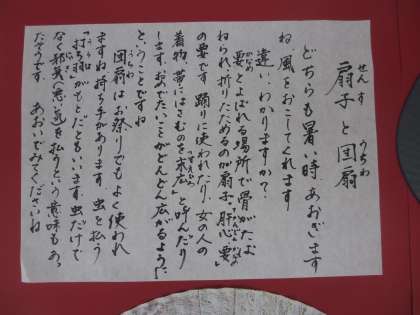 扇子と団扇
せんす
うちわ
どちらも暑い時あおぎます
ね、風をおこしてくれます
違い、わかりますか？
要とよばれる場所で骨がたば
かなめ
ねられ、折りたためるのが扇子。肝心要
かんじんかなめ
の要です。踊りに使われたり、女の人の
着物、帯にはさむのを末広と呼んだり
すえひろ
します。おめでたいことがどんどん広がるように
ということですね
団扇はお祭りでもよく使われ
うちわ
ますね持ち手があります。虫を払う
「打ち羽」がもとだともいいます。虫だけで
なく邪気、悪い気を払うという意味もあっ
たそうです。あおいでみてくださいね